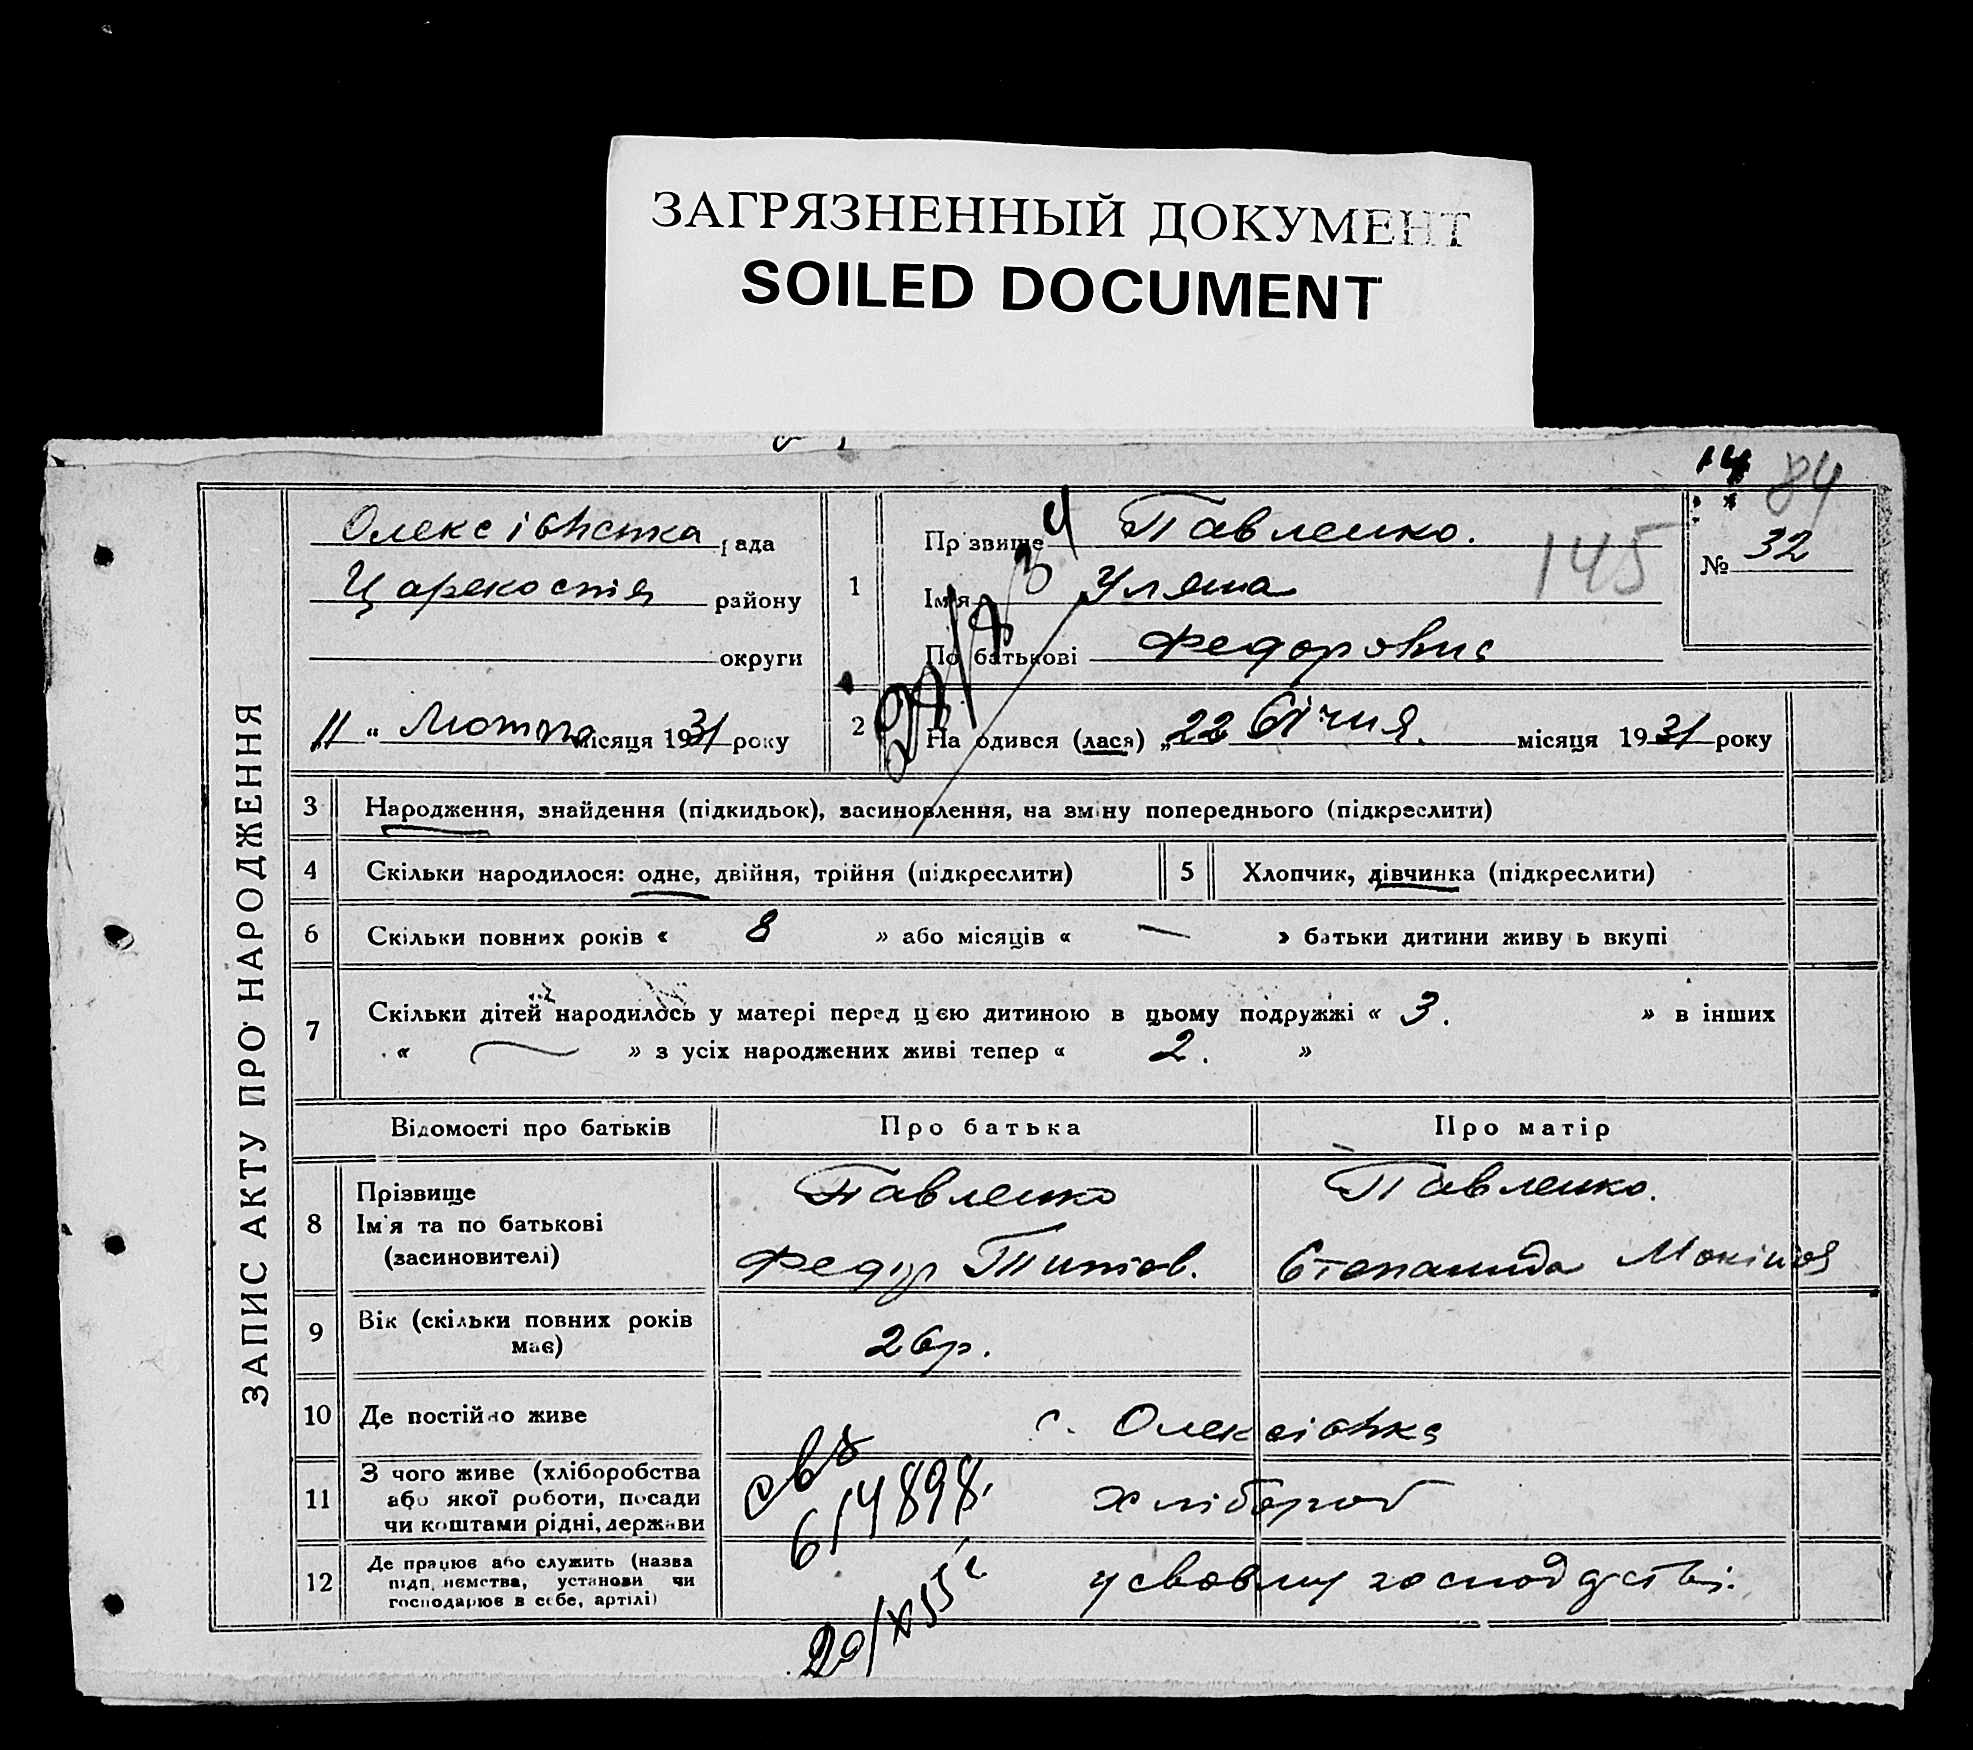 ЗАГРЯЗНЕННЫЙ ДОКУМЕНТ
SOILED DOCUMENT
14 84
ЗАПИС АКТУ ПРО НАРОДЖЕННЯ
Олексіївська рада
району
округи
„11“ Лютого місяця 1931 року
1
Прізвище Павленко.
Ім'я Уляна
По батькові Федоровна
145
№ 32
2 Народився (лася) „22 Січня. місяця 1931 року
3 Народження, знайдення (підкидьок), засиновлення, на зміну попереднього (підкреслити)
4 Скільки народилося: одне, двійня, трійня (підкреслити) 5 Хлопчик, дівчинка (підкреслити)
6 Скільки повних років « 8 » або місяців « — » батьки дитини живуть вкупі
7 Скільки дітей народилось у матері перед цією дитиною в цьому подружжі « 3. » в інших
« — » з усіх народжених живі тепер « 2. »
Відомості про батьків Про батька Про матір
8 Прізвище
Ім'я та по батькові
(засиновителі)
Павленко Павленко.
Федір Титов. Степанида
9 Вік (скільки повних років
має)
26р.
10 Де постійно живе с. Олексіївка
11 З чого живе (хліборобства
або якої роботи, посади
чи коштами рідні, держави
хлібороб
12 Де працює або служить (назва
підприємства, установи чи
господарює в себе, артілі)
у своєму господарстві.
614898.
20/X 55 г